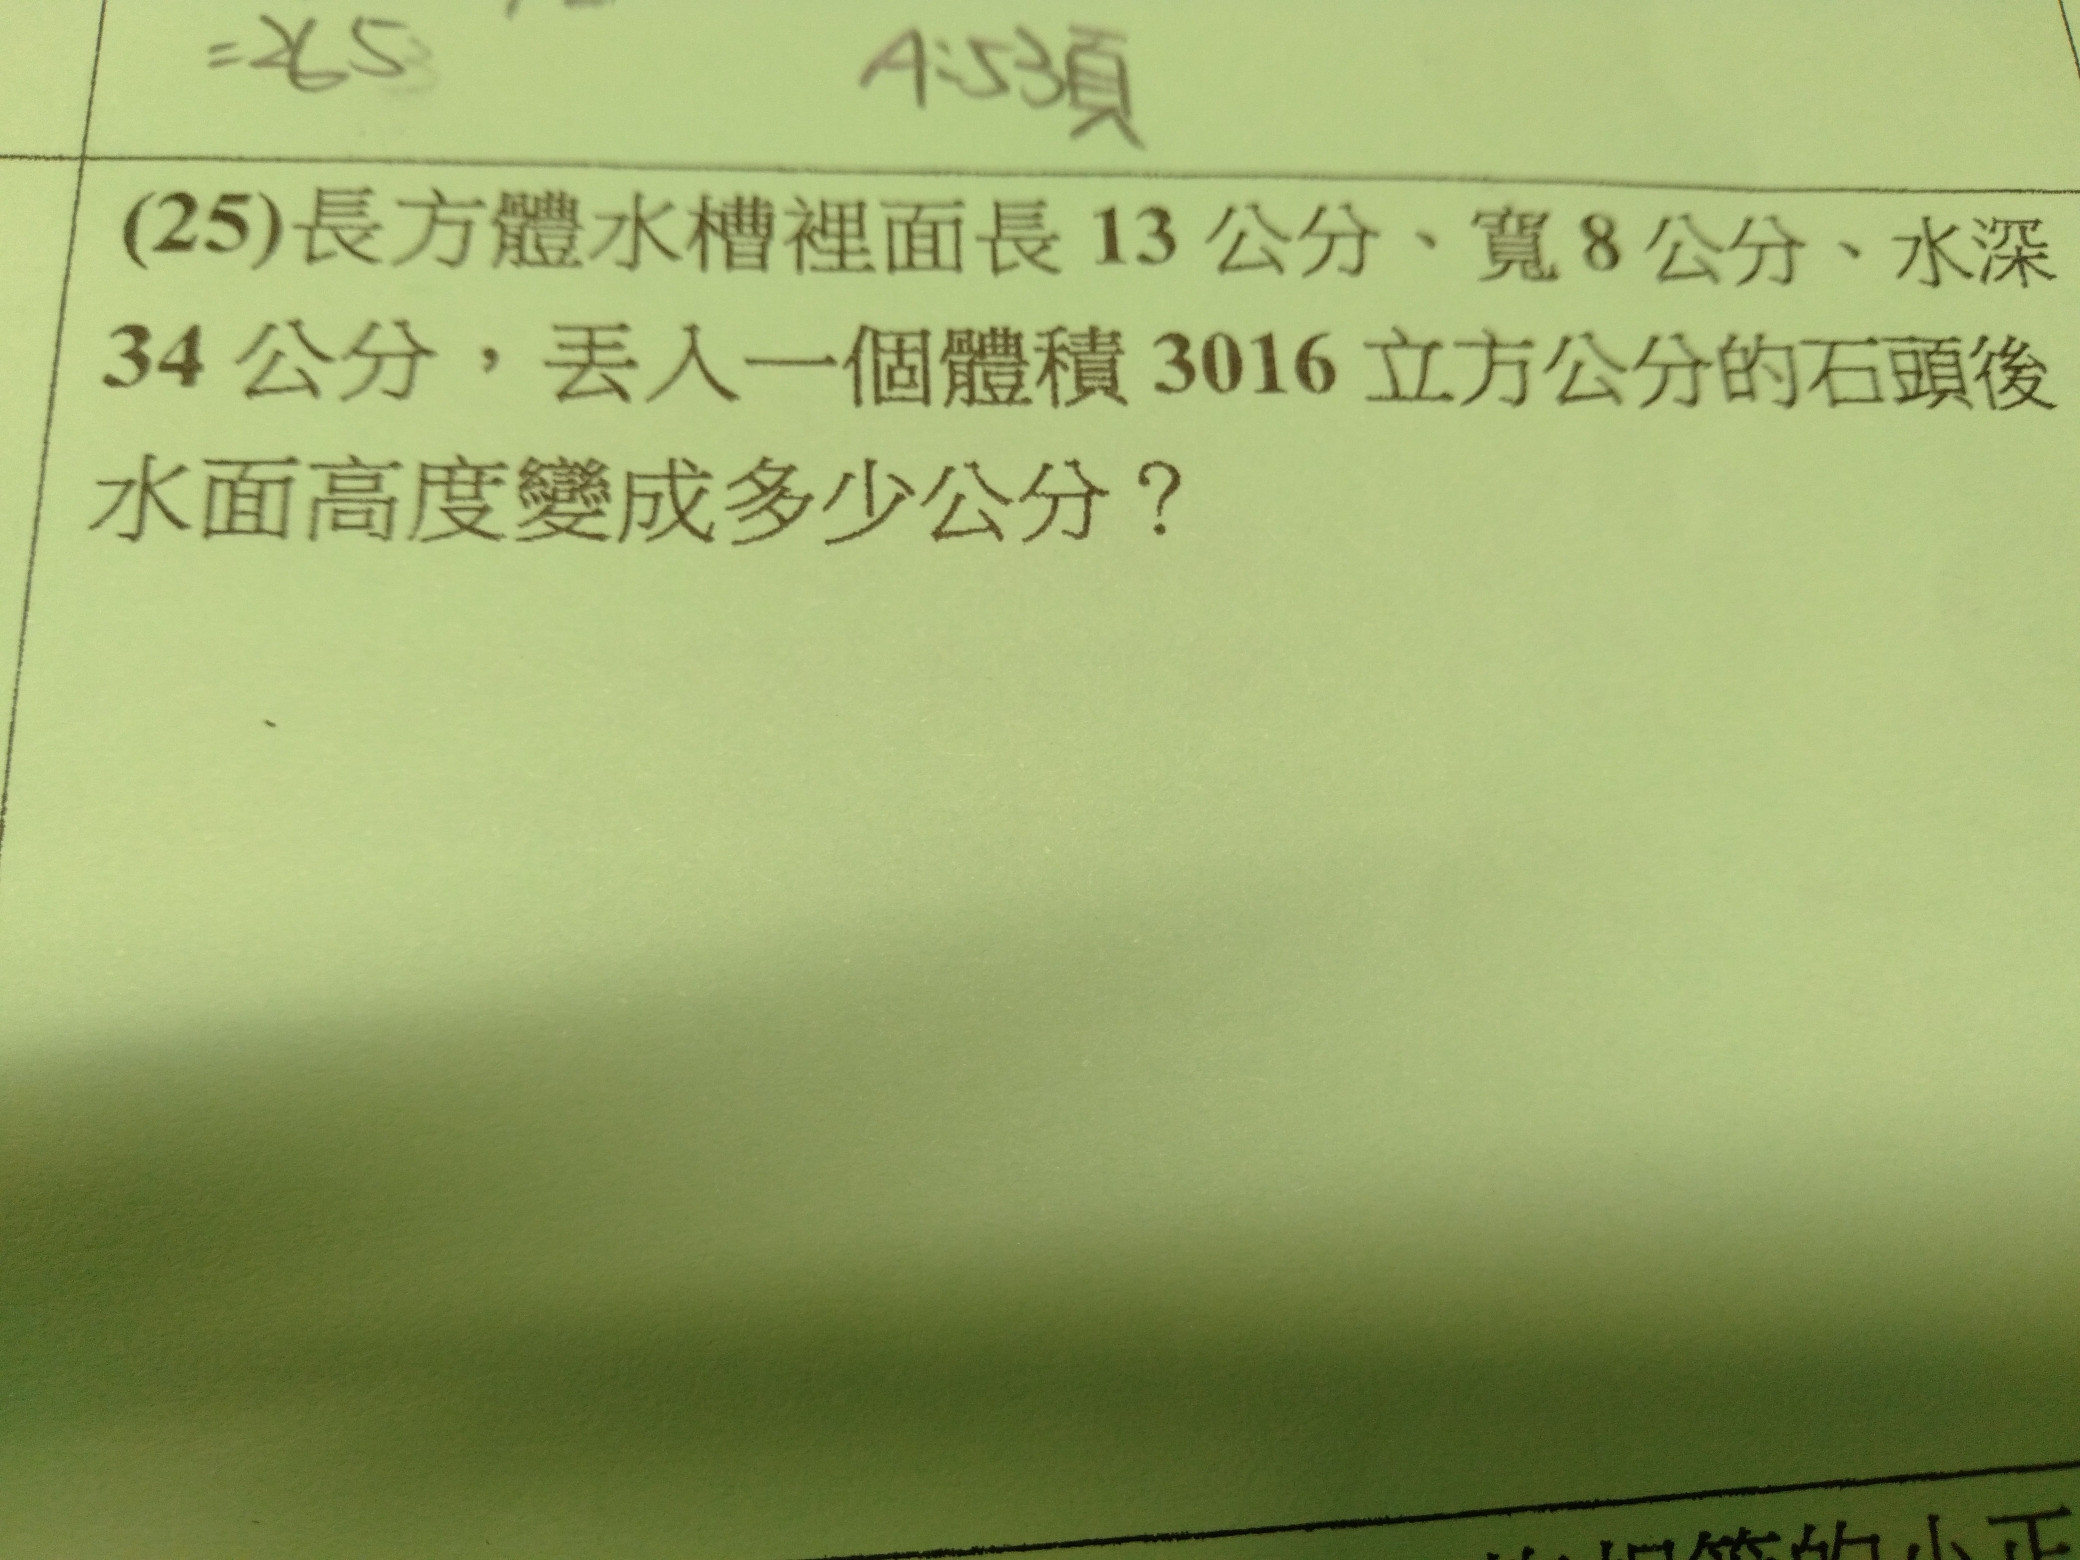 =265
A:53頁
(25)長方體水槽裡面長 13 公分、寬 8 公分、水深
34 公分，丟入一個體積 3016 立方公分的石頭後
水面高度變成多少公分？
的小正